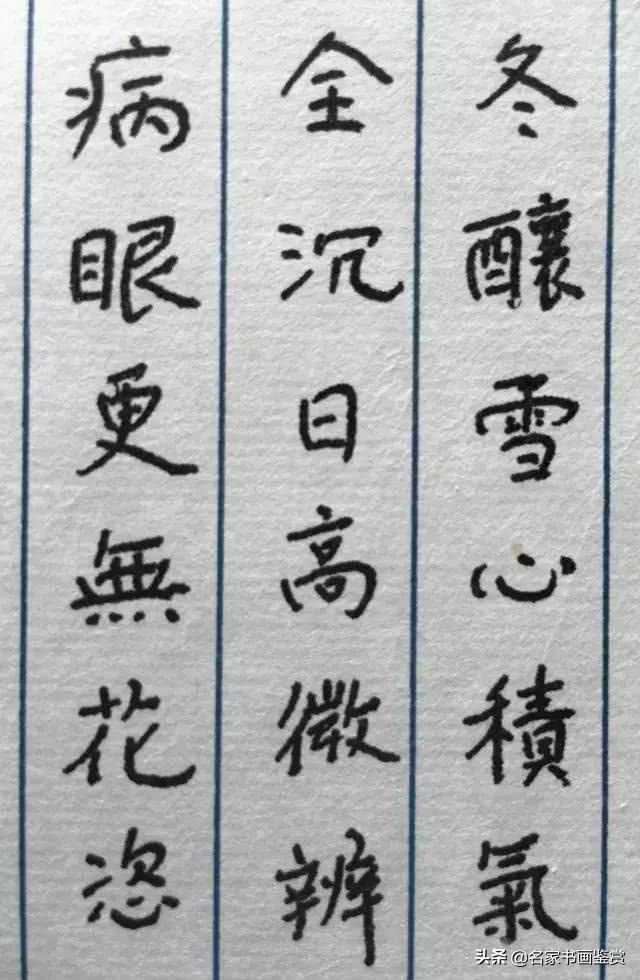 冬釀雪心積氣
全沉日高微辨
病眼更無花恣
头条 @名家书画鉴赏